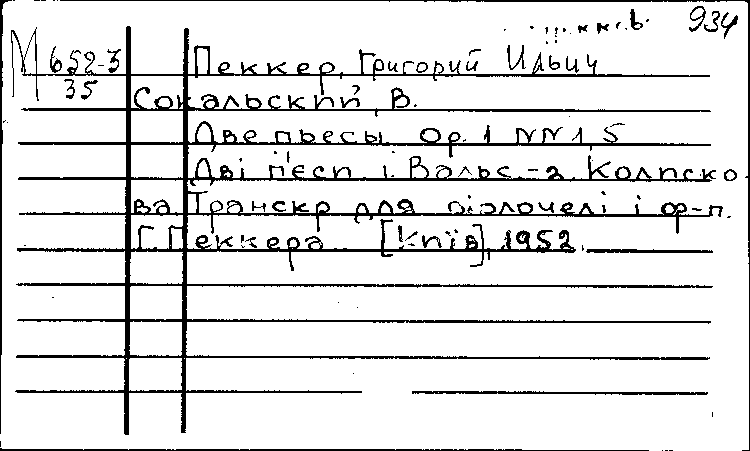 934
М 652-3
35
Пеккер, Григорий Ильич
Сокальский, В.
Две пьесы Op. 1 NN 1, 5
Дві п'єсп. 1. Вальс.-2. Колпско-
ва. Транскр для віолочелі і ф-п.
Г. Пеккера [Київ], 1952.